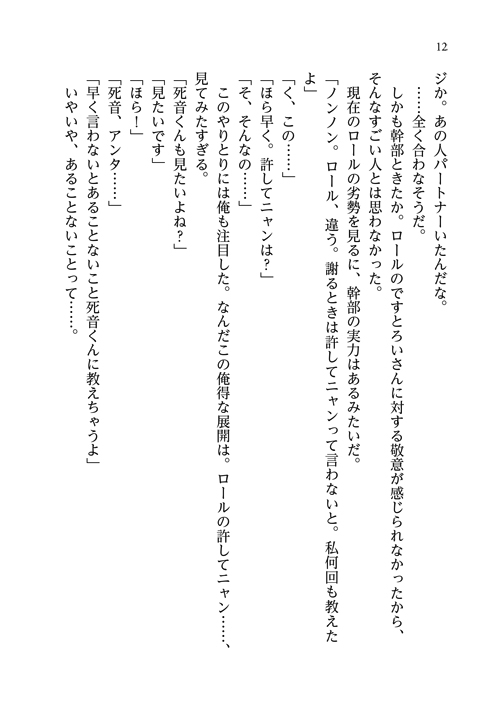 12
ジか。あの人パートナーいたんだな。
……全く合わなそうだ。
しかも幹部ときたか。ロールのですとろいさんに対する敬意が感じられなかったから、
そんなすごい人とは思わなかった。
現在のロールの劣勢を見るに、幹部の実力はあるみたいだ。
「ノンノン。ロール、違う。謝るときは許してニャンって言わないと。私何回も教えた
よ」
「く、この……」
「ほら早く。許してニャンは？」
「そ、そんなの……」
このやりとりには俺も注目した。なんだこの俺得な展開は。ロールの許してニャン……、
見てみたすぎる。
「死音くんも見たいよね？」
「見たいです」
「ほら！」
「死音、アンタ……」
「早く言わないとあることないこと死音くんに教えちゃうよ」
いやいや、あることないことって……。